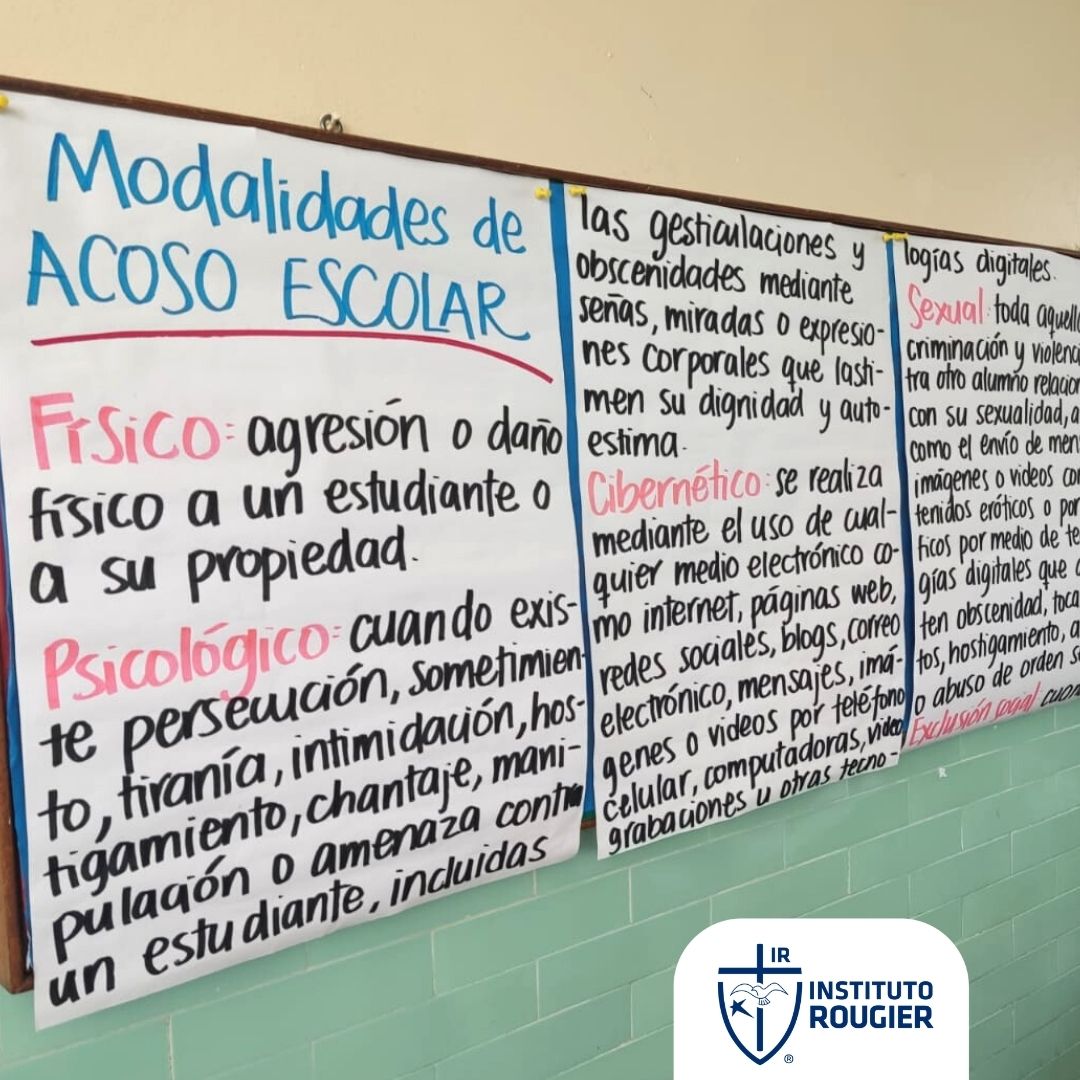 Modalidades de
ACOSO ESCOLAR
Físico: agresión o daño
físico a un estudiante o
a su propiedad.
Psicológico: cuando exis-
te persecución, sometimien-
to, tiranía, intimidación, hos-
tigamiento, chantaje, mani-
pulación o amenaza contra
un estudiante, incluidas
las gesticulaciones y
obscenidades mediante
señas, miradas o expresio-
nes corporales que lasti-
men su dignidad y auto-
estima.
Cibernético: se realiza
mediante el uso de cual-
quier medio electrónico co-
mo internet, páginas web,
redes sociales, blogs, correo
electrónico, mensajes, imá-
genes o videos por teléfono
celular, computadoras, video
grabaciones u otras tecno-
logías digitales.
Sexual: toda aquella
criminación y violenc
tra otro alumno relacion
con su sexualidad, a
como el envío de men
imágenes o videos con
tenidos eróticos o por
ficos por medio de te
gías digitales que
ten obscenidad, toca
tos, hostigamiento, a
o abuso de orden se
Exclusión social: cuan
IR
INSTITUTO
ROUGIER
®